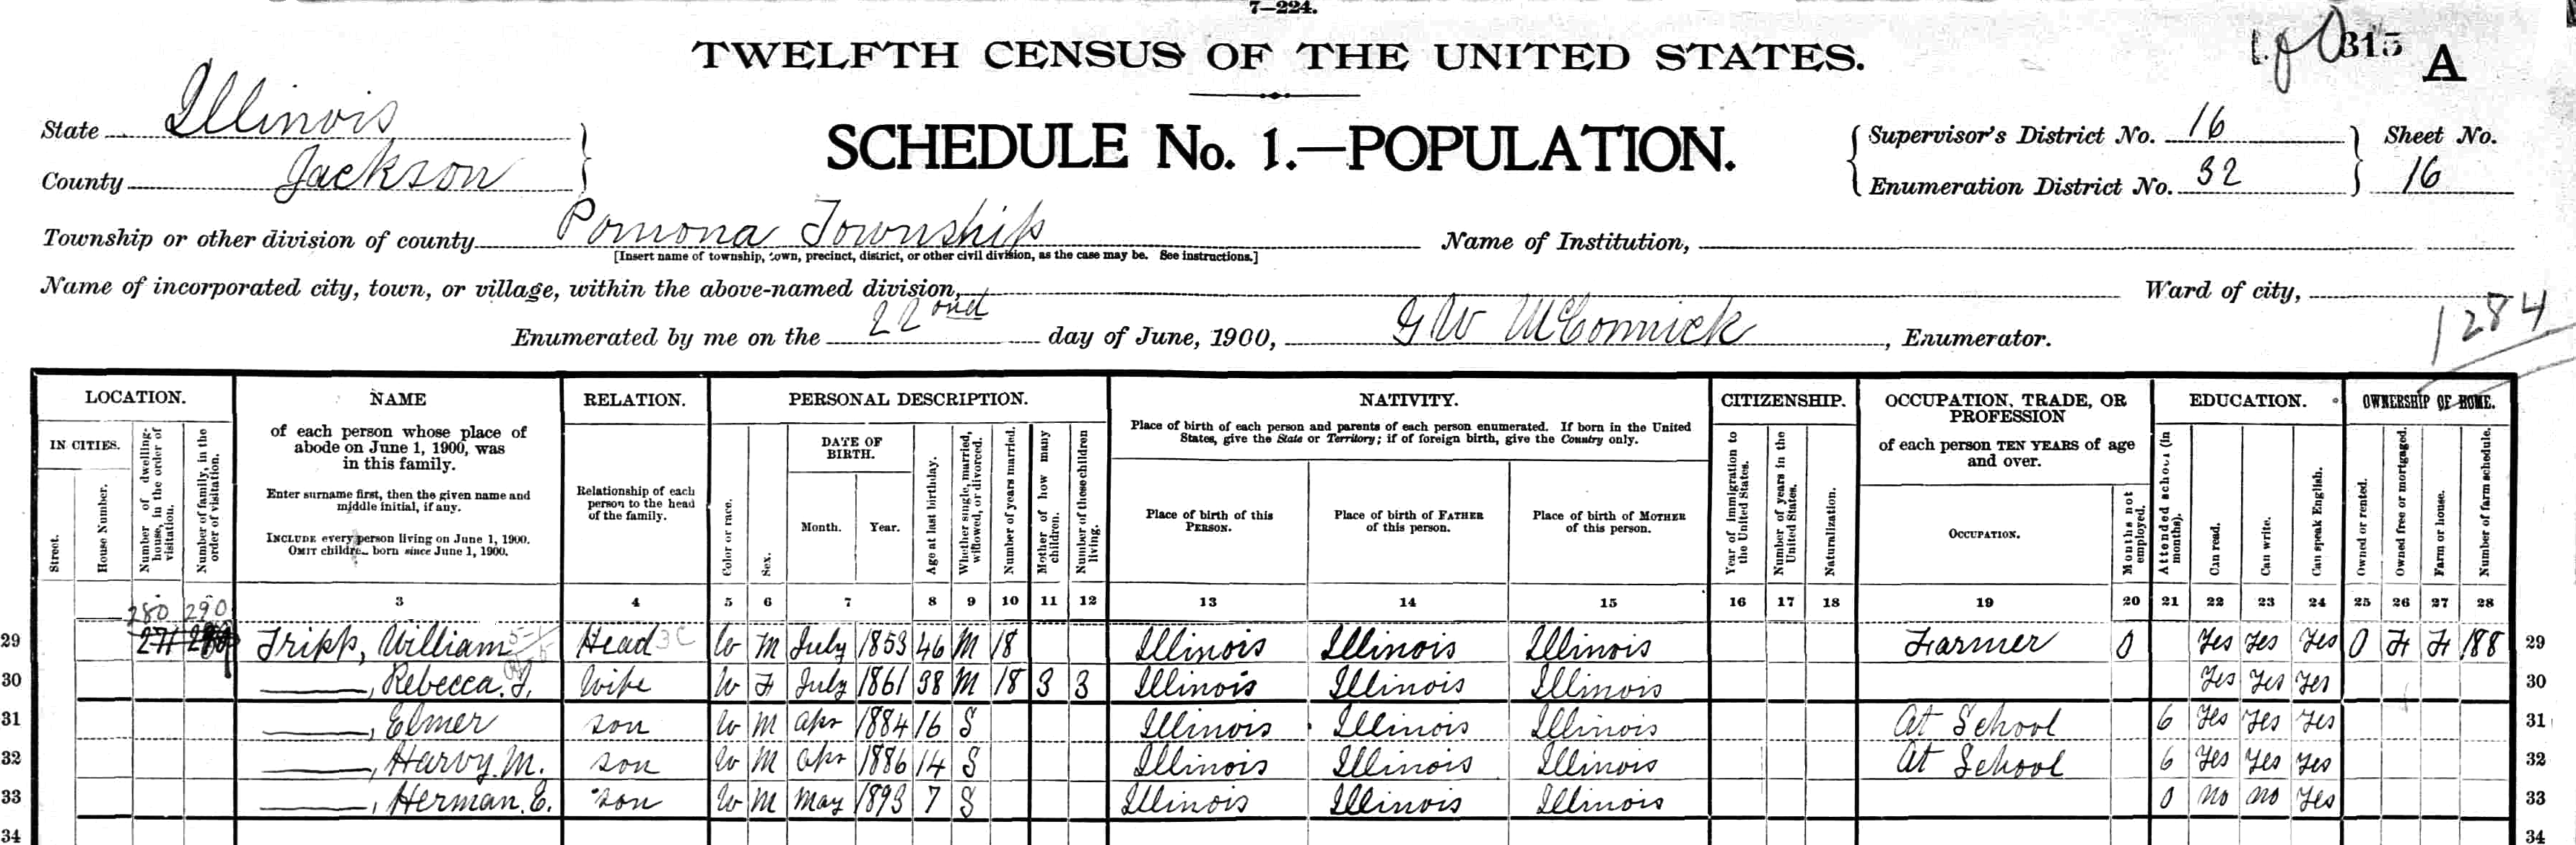 7—224.
TWELFTH CENSUS OF THE UNITED STATES.
315 A
State Illinois
County Jackson
SCHEDULE No. 1.—POPULATION.
Supervisor's District No. 16
Enumeration District No. 32
Sheet No.
16
Township or other division of county Pomona Township
[Insert name of township, town, precinct, district, or other civil division, as the case may be. See instructions.]
Name of Institution,
Name of incorporated city, town, or village, within the above-named division,
Ward of city,
1284
Enumerated by me on the 22nd day of June, 1900, G W McCormick, Enumerator.
LOCATION.
IN CITIES.
Street.
House Number.
Number of dwelling-house, in the order of visitation.
Number of family, in the order of visitation.
NAME
of each person whose place of
abode on June 1, 1900, was
in this family.
Enter surname first, then the given name and
middle initial, if any.
INCLUDE every person living on June 1, 1900.
OMIT children born since June 1, 1900.
RELATION.
Relationship of each
person to the head
of the family.
PERSONAL DESCRIPTION.
Color or race.
Sex.
DATE OF
BIRTH.
Month.
Year.
Age at last birthday.
Whether single, married, widowed, or divorced.
Number of years married.
Mother of how many children.
Number of these children living.
NATIVITY.
Place of birth of each person and parents of each person enumerated. If born in the United
States, give the State or Territory; if of foreign birth, give the Country only.
Place of birth of this
PERSON.
Place of birth of FATHER
of this person.
Place of birth of MOTHER
of this person.
CITIZENSHIP.
Year of immigration to the United States.
Number of years in the United States.
Naturalization.
OCCUPATION, TRADE, OR
PROFESSION
of each person TEN YEARS of age
and over.
OCCUPATION.
Months not employed.
EDUCATION.
Attended school (in months).
Can read.
Can write.
Can speak English.
OWNERSHIP OF HOME.
Owned or rented.
Owned free or mortgaged.
Farm or house.
Number of farm schedule.
3 4 5 6 7 8 9 10 11 12 13 14 15 16 17 18 19 20 21 22 23 24 25 26 27 28
280 290
29 271 Tripp, William Head W M July 1853 46 M 18 Illinois Illinois Illinois Farmer 0 Yes Yes Yes O F F 188 29
30 ——, Rebecca. J. Wife W F July 1861 38 M 18 3 3 Illinois Illinois Illinois Yes Yes Yes 30
31 ——, Elmer son W M Apr 1884 16 S Illinois Illinois Illinois At School 6 Yes Yes Yes 31
32 ——, Harvy. M. son W M Apr 1886 14 S Illinois Illinois Illinois At School 6 Yes Yes Yes 32
33 ——, Herman. E. son W M May 1893 7 S Illinois Illinois Illinois 0 no no Yes 33
34 34